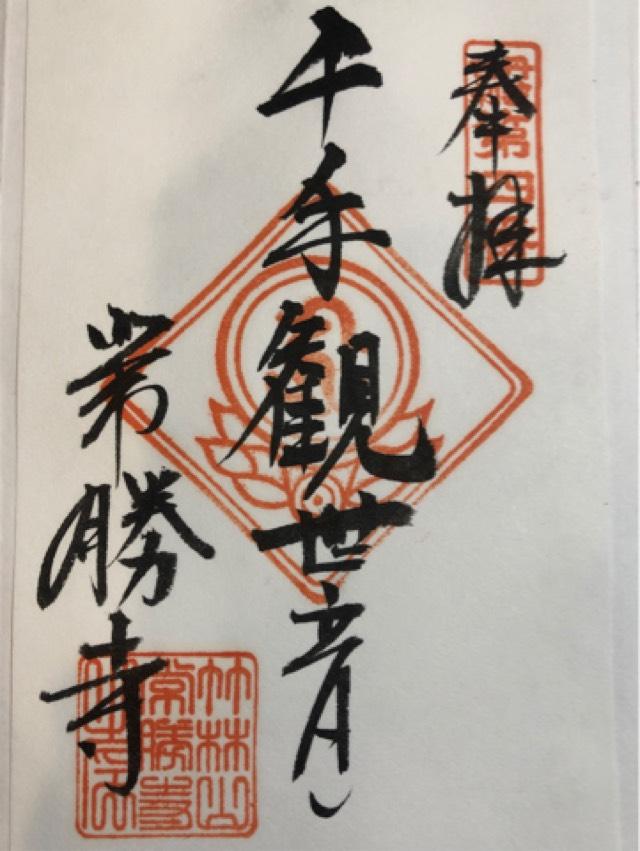 奉拝
第四
千手観世音
常勝寺
竹林山
常勝寺